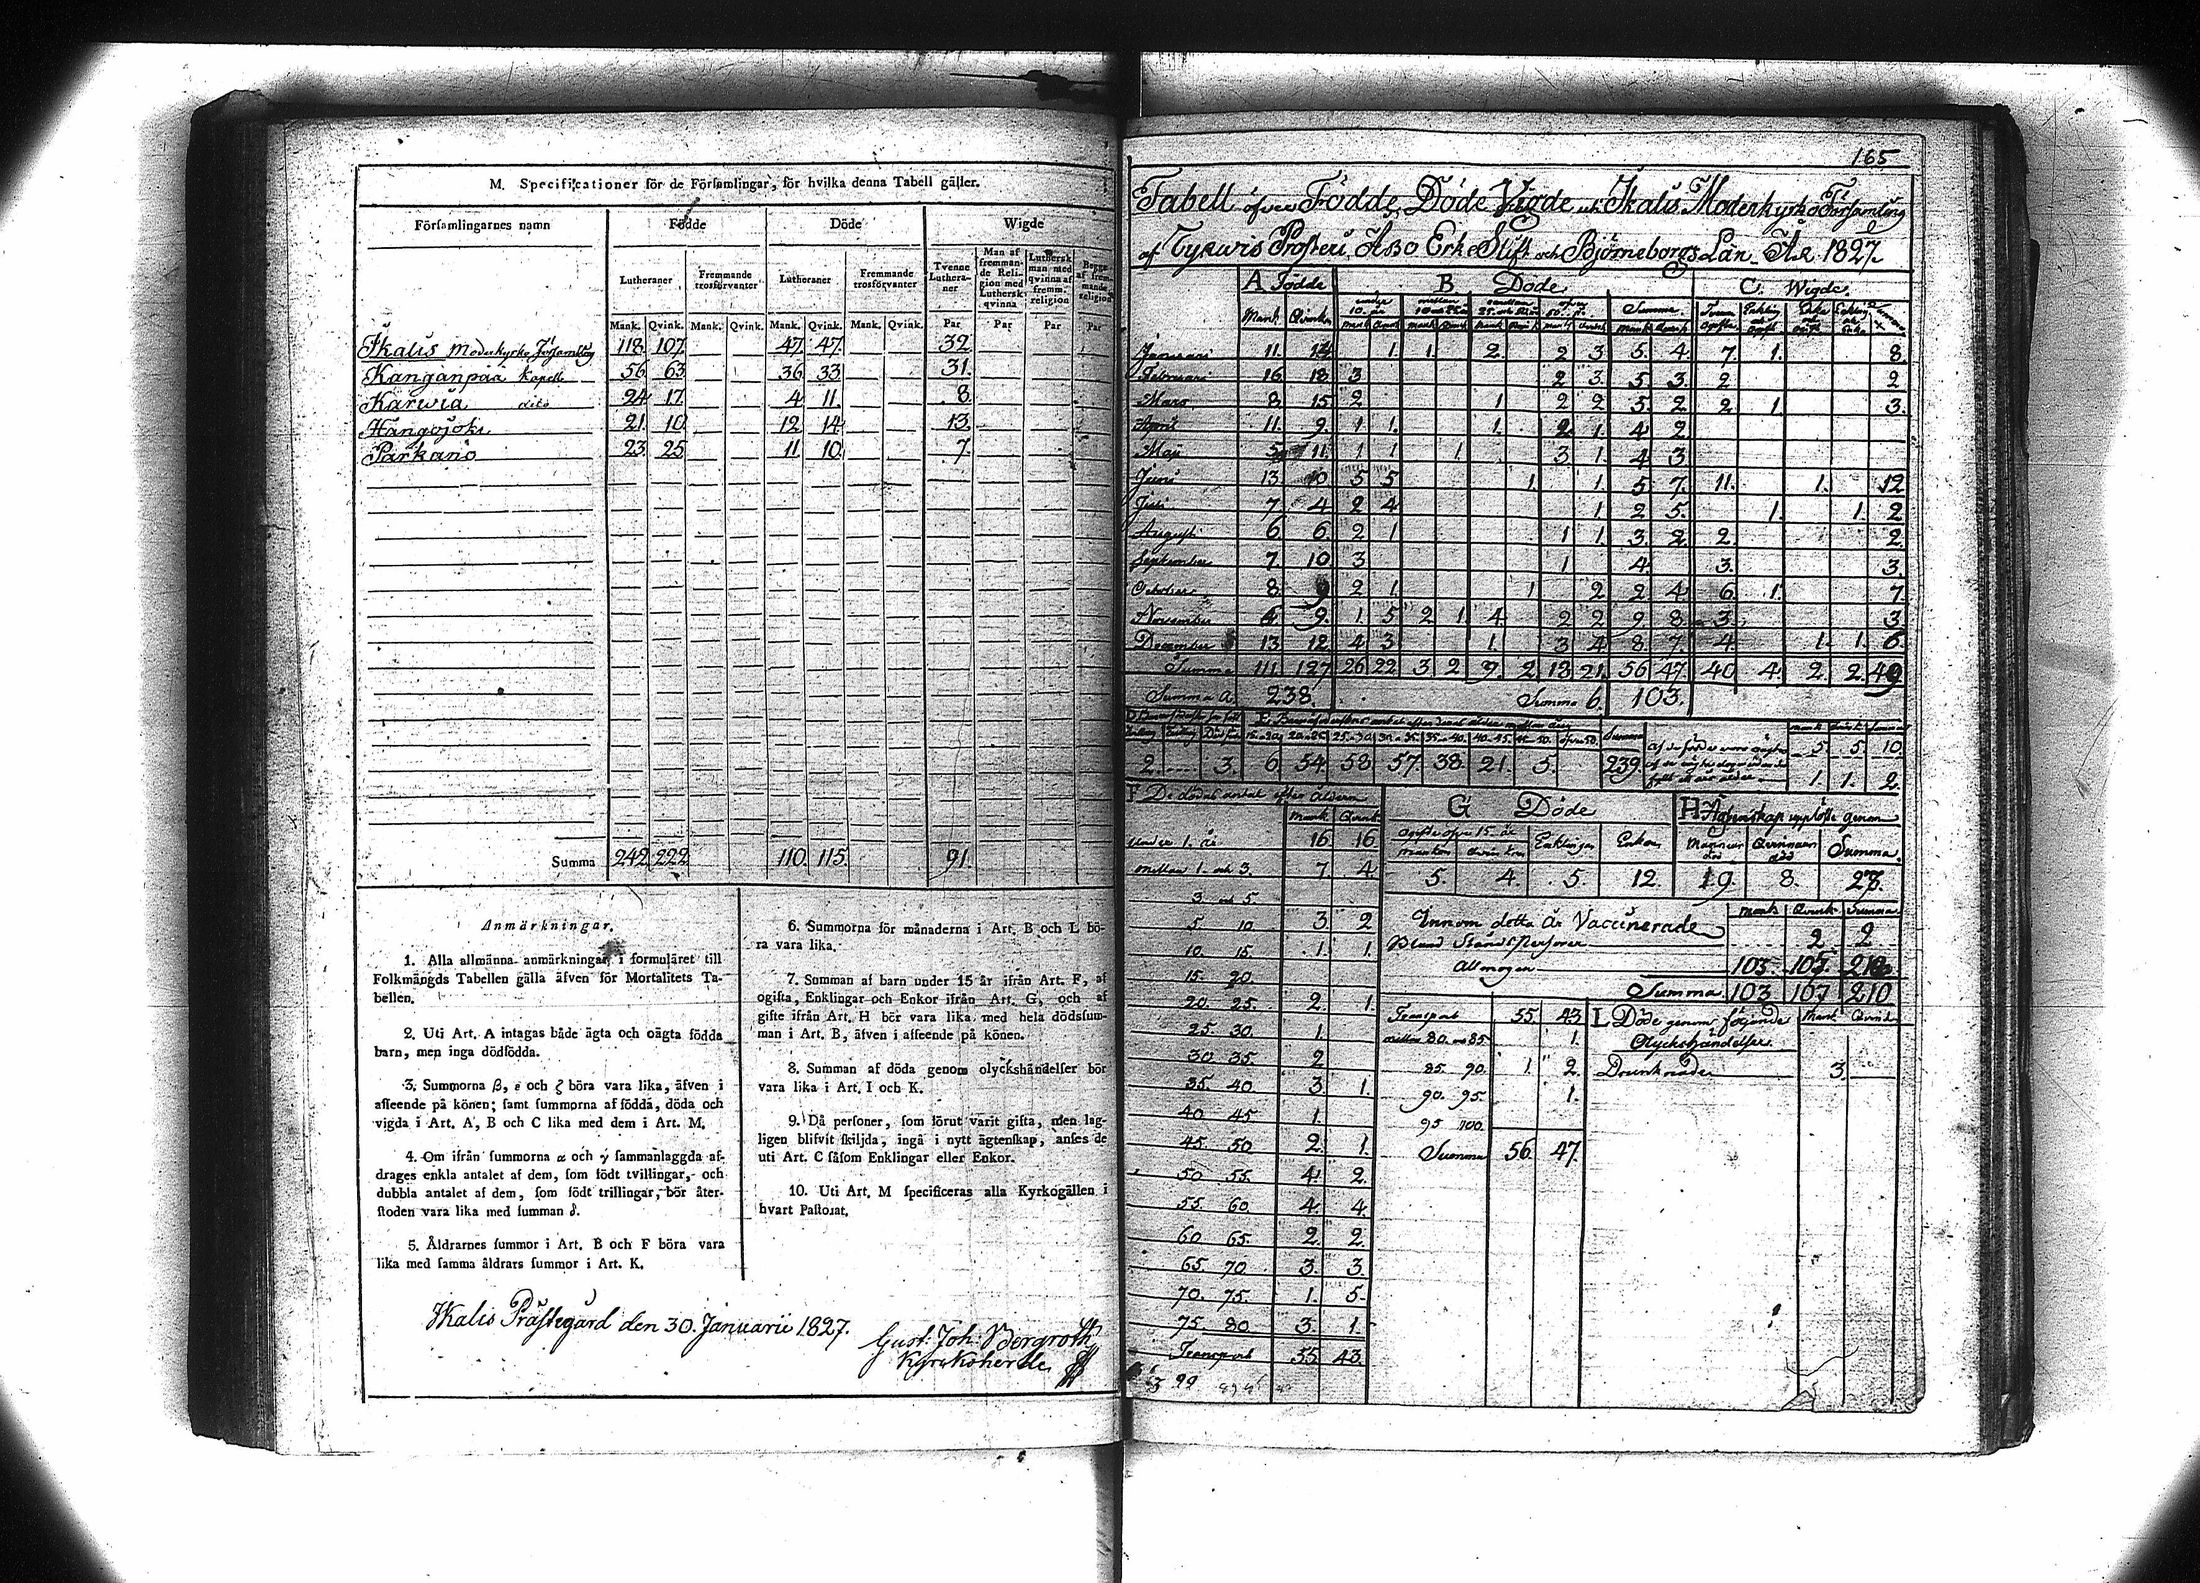 M. Specificationer för de Församlingar, för hvilka denna Tabell gäller.
Församlingarnes namn Födde Döde Wigde
Lutheraner Fremmande trosförvanter Lutheraner Fremmande trosförvanter Tvenne Lutheraner Man af fremmande Religion med Luthersk qvinna Luthersk man med qvinna af fremm. religion Begge af fremmande religion
Mank. Qvink. Mank. Qvink. Mank. Qvink. Mank. Qvink. Par Par Par Par
Ikalis Moderkyrko Församling 118 107 47 47 32
Kangänpää Kapell 56 63 36 33 31.
Karwia dito 24 17 4 11. 8.
Hongojoki 21. 10 12 14 13.
Parkano 23. 25 11. 10. 7.
Summa 242 222 110 115 91.
Anmärkningar.
1. Alla allmänna anmärkningar i formuläret till
Folkmängds Tabellen gälla äfven för Mortalitets Ta-
bellen.
2. Uti Art. A intagas både ägta och oägta födda
barn, men inga dödfödda.
3. Summorna β, ε och ζ böra vara lika, äfven i
affeende på könen; samt summorna af födda, döda och
vigda i Art. A, B och C lika med dem i Art. M.
4. Om ifrån summorna α och γ sammanlaggda af-
drages enkla antalet af dem, som födt tvillingar, och
dubbla antalet af dem, som födt trillingar, bör åter-
stoden vara lika med summan δ.
5. Åldrarnes summor i Art. B och F böra vara
lika med samma åldrars summor i Art. K.
6. Summorna för månaderna i Art. B och L bö-
ra vara lika.
7. Summan af barn under 15 år ifrån Art. F, af
ogifta, Enklingar och Enkor ifrån Art. G, och af
gifte ifrån Art. H bör vara lika med hela dödssum-
man i Art. B, äfven i affeende på könen.
8. Summan af döda genom olyckshändelser bör
vara lika i Art. I och K.
9. Då personer, som förut varit gifta, men lag-
ligen blifvit skiljda, ingå i nytt ägtenskap, anses de
uti Art. C såsom Enklingar eller Enkor.
10. Uti Art. M specificeras alla Kyrkogällen i
hvart Pastorat.
Ikalis Prästegård den 30. Januarii 1827.
Gust: Joh: Bergroth
Kyrkoherde
165
Tabell öfver Födde, Döde Vigde uti Ikalis Moderkyrko Församling
af Tyrwis Prosteri, Åbo Erke Stift och Björneborgs Län År 1827.
A Födde B Döde C. Wigde.
Januari 11. 14 1. 1. 2. 2 3 5. 4. 7. 1. 8.
Februari 16 18 3 2 3. 5 3. 2 2
Mars 8 15 2 1 2 2 5. 2 2. 1. 3.
April 11. 9. 1 1. 1. 2. 1. 4 2
Maji 5 11. 1 1 1 3 1. 4 3
Juni 13 10 5 5 1. 1 5 7. 11. 1. 12
Juli 7. 4 2 4 1 2 5. 1. 1. 2
Augusti 6 6 2 1 1 1. 3 2 2. 2.
September 7. 10 3 1 4. 3. 3.
October 8 9 2 1. 1 2 2 4. 6. 1. 7.
November 6 9. 1. 5 2 1. 4. 2 2 9 8 3. 3.
December 13 12. 4 3 1. 3 4 8 7. 4. 1. 1. 6.
Summa 111. 127 26 22 3 2 9. 2. 18 21. 56 47. 40 4. 2. 2. 49
Summa a. 238. Summa 6. 103.
2. 3. 6. 54 58. 57. 38. 21. 5. 239.
5. 5. 10.
1. 1. 2.
F De dödas antal efter åldern G Döde H Ägtenskap upplöste genom
Mank Qvink
under 1. år 16 16
mellan 1. och 3. 7. 4.
3 och 5
5 10 3 2
10 15. 1 1.
15 20.
20. 25. 2. 1.
25 30. 1.
30 35. 2
35. 40. 3. 1.
40 45 1.
45. 50 2. 1.
50 55. 4. 2.
55. 60. 4. 4.
60 65. 2. 2.
65. 70. 3. 3.
70. 75. 1. 5.
75 80 3. 1.
Transport 55. 43.
Enklingar Enkor Summa.
5. 4. 5. 12. 19. 8. 27.
Innom detta År Vaccinerade Mank Qvink Summa
Bland Ståndspersoner 2 2
Allmogen 103.
Summa. 103 107 210
Transport 55. 43
mellan 80. och 85. 1.
85 90. 1. 2.
90. 95. 1.
95 100.
Summa 56. 47.
L Döde genom följande Mank Qvink
Olyckshändelser.
Drunknade 3.